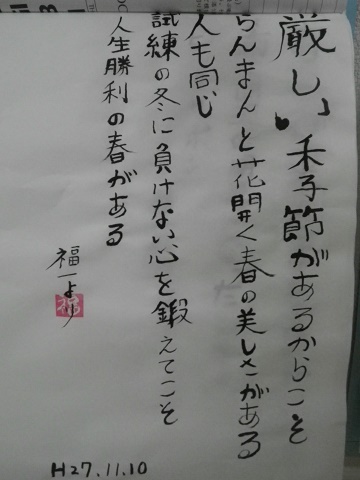 厳しい季節があるからこそ
らんまんと花開く春の美しさがある
人も同じ
試練の冬に負けない心を鍛えてこそ
人生勝利の春がある
福一より
福
H27.11.10